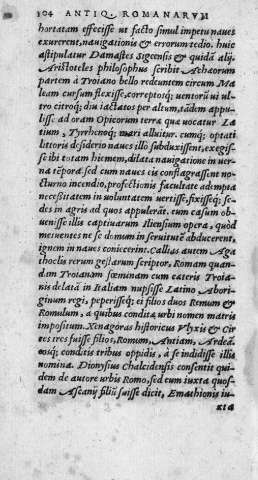 104 ANTIQ. ROMANARVM
hortatam effecisse ut facto simul impetu naues
exurerent, nauigationis & errorum tedio. huic
astipulatur Damastes Sigensis & quidã alij.
Aristoteles philosophus scribit Achæorum
partem à Troiano bello redeuntem circum Ma
leam cursum flexisse, correptosq; uentorũ ui ul
tro citroq; diu iactatos per altum, tãdem appu-
lisse ad oram Opicorum terræ quæ uocatur La
tium, Tyrrhenoq; mari alluitur. cumq; optati
littoris desiderio naues illò subduxissent, exegis-
se ibi totam hiemem, dilata nauigatione in uer-
na tẽpora. sed cum naues eis conflagrassent no-
cturno incendio, profectionis facultate adempta
necessitatem in uoluntatem uertisse, fixisseq; se-
des in agris ad quos appulerãt. eum casum ob-
uenisse illis captiuarum Iliensium opera, quod
metuentes ne se domum in seruitutẽ abducerent,
ignem in naues conijcerint. Callias autem Aga
thoclis rerum gestarum scriptor, Romam quan-
dam Troianam fœminam cum cæteris Troia-
nis delatã in Italiam nupsisse Latino Abori-
ginum regi, peperisseq; ei filios duos Remum &
Romulum, à quibus condita urbi nomen matris
impositum. Xenagoras historicus Vlyxis & Cir
ces tres fuisse filios, Romum, Antiam, Ardeã.
eosq; conditis tribus oppidis, à se indidisse illis
nomina. Dionysius Chalcidensis consentit qui-
dem de autore urbis Romo, sed eum iuxta quos-
dam Ascanij filiũ fuisse dicit, Emathionis iu-
xta